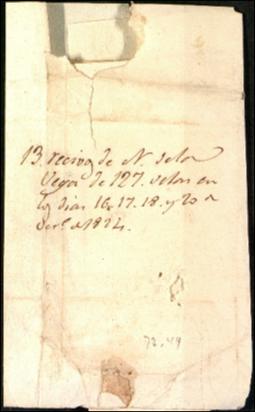 13. recivo de N. de los
Vegas de 127. velas en
los dias 16. 17. 18. y 20 a
de 1824.
72.49